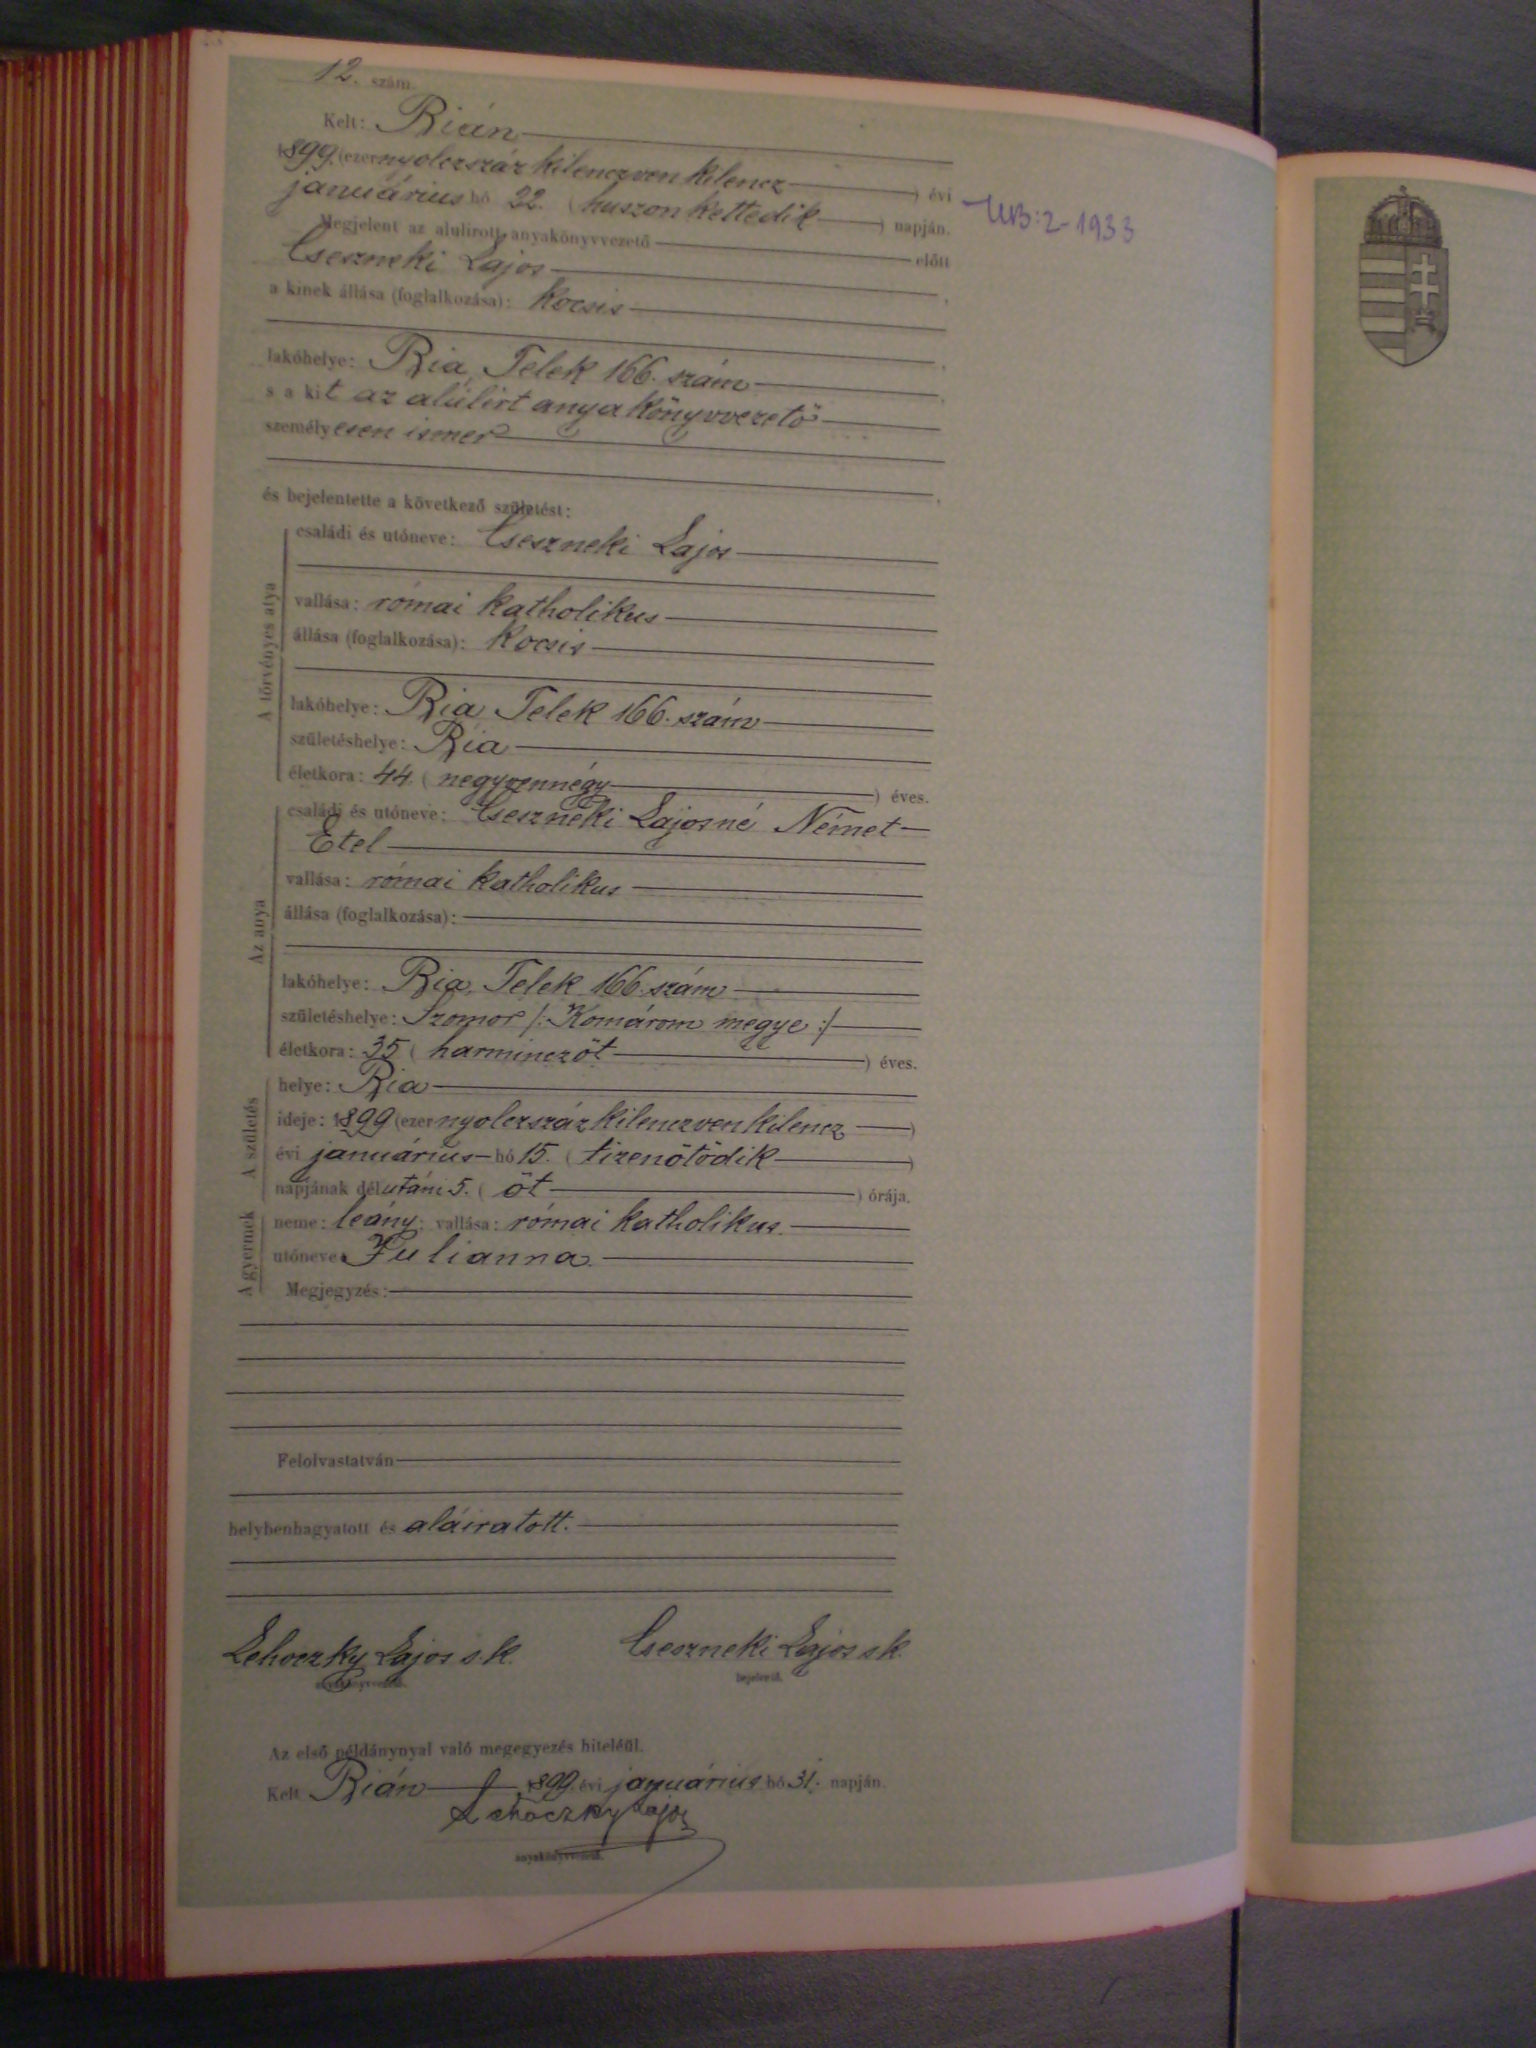 12. szám.
Kelt: Bián
1899. (ezernyolczszáz kilenczven kilencz) évi
januárius hó 22. (huszonkettedik) napján.
UB: 2-1933
Megjelent az alulirott anyakönyvvezető előtt
Cseszneki Lajos,
a kinek állása (foglalkozása): kocsis
lakóhelye: Bia, Telek 166. szám,
s a kit az alúlirt anyakönyvvezető
személyesen ismer,
és bejelentette a következő születést:
A törvényes atya
családi és utóneve: Cseszneki Lajos
vallása: római katholikus
állása (foglalkozása): kocsis
lakóhelye: Bia, Telek 166. szám
születéshelye: Bia
életkora: 44 (negyvennégy) éves.
Az anya
családi és utóneve: Cseszneki Lajosné Német
Etel
vallása: római katholikus
állása (foglalkozása):
lakóhelye: Bia, Telek 166. szám
születéshelye: Szomor /: Komárom megye :/
életkora: 35 (harminczöt) éves.
A születés
helye: Bia
ideje: 1899 (ezernyolczszáz kilenczven kilencz)
évi januárius hó 15. (tizenötödik)
napjának délutáni 5. (öt) órája.
A gyermek
neme: leány; vallása: római katholikus.
utóneve: Julianna.
Megjegyzés:
Felolvastatván
helybenhagyatott és aláiratott.
Lehoczky Lajos s.k. Cseszneki Lajos sk.
anyakönyvvezető. bejelentő.
Az első példánynyal való megegyezés hiteléül.
Kelt Bián 1899. évi januárius hó 31. napján.
Lehoczky Lajos
anyakönyvvezető.